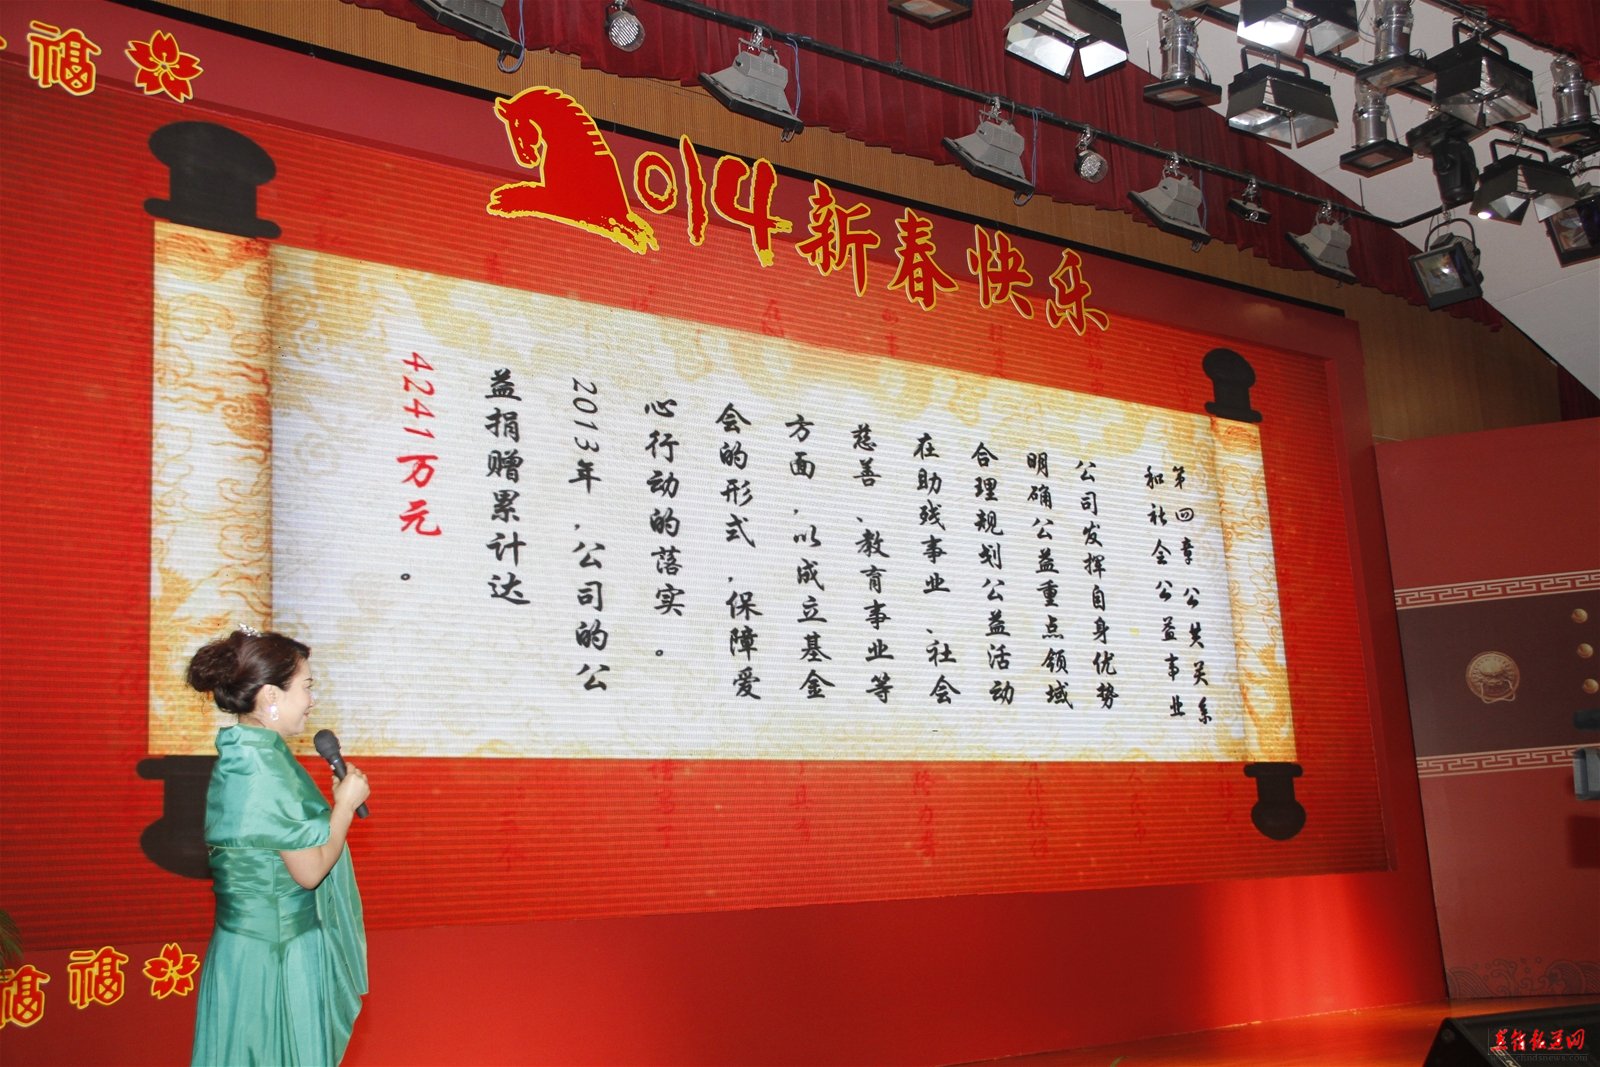 福
2014新春快乐
第四章 公共关系
和社会公益事业
公司发挥自身优势
明确公益重点领域
合理规划公益活动
在助残事业、社会
慈善、教育事业等
方面，以成立基金
会的形式，保障爱
心行动的落实。
2013年，公司的公
益捐赠累计达
4241万元。
福福
直销报道网
www.chndsnews.com